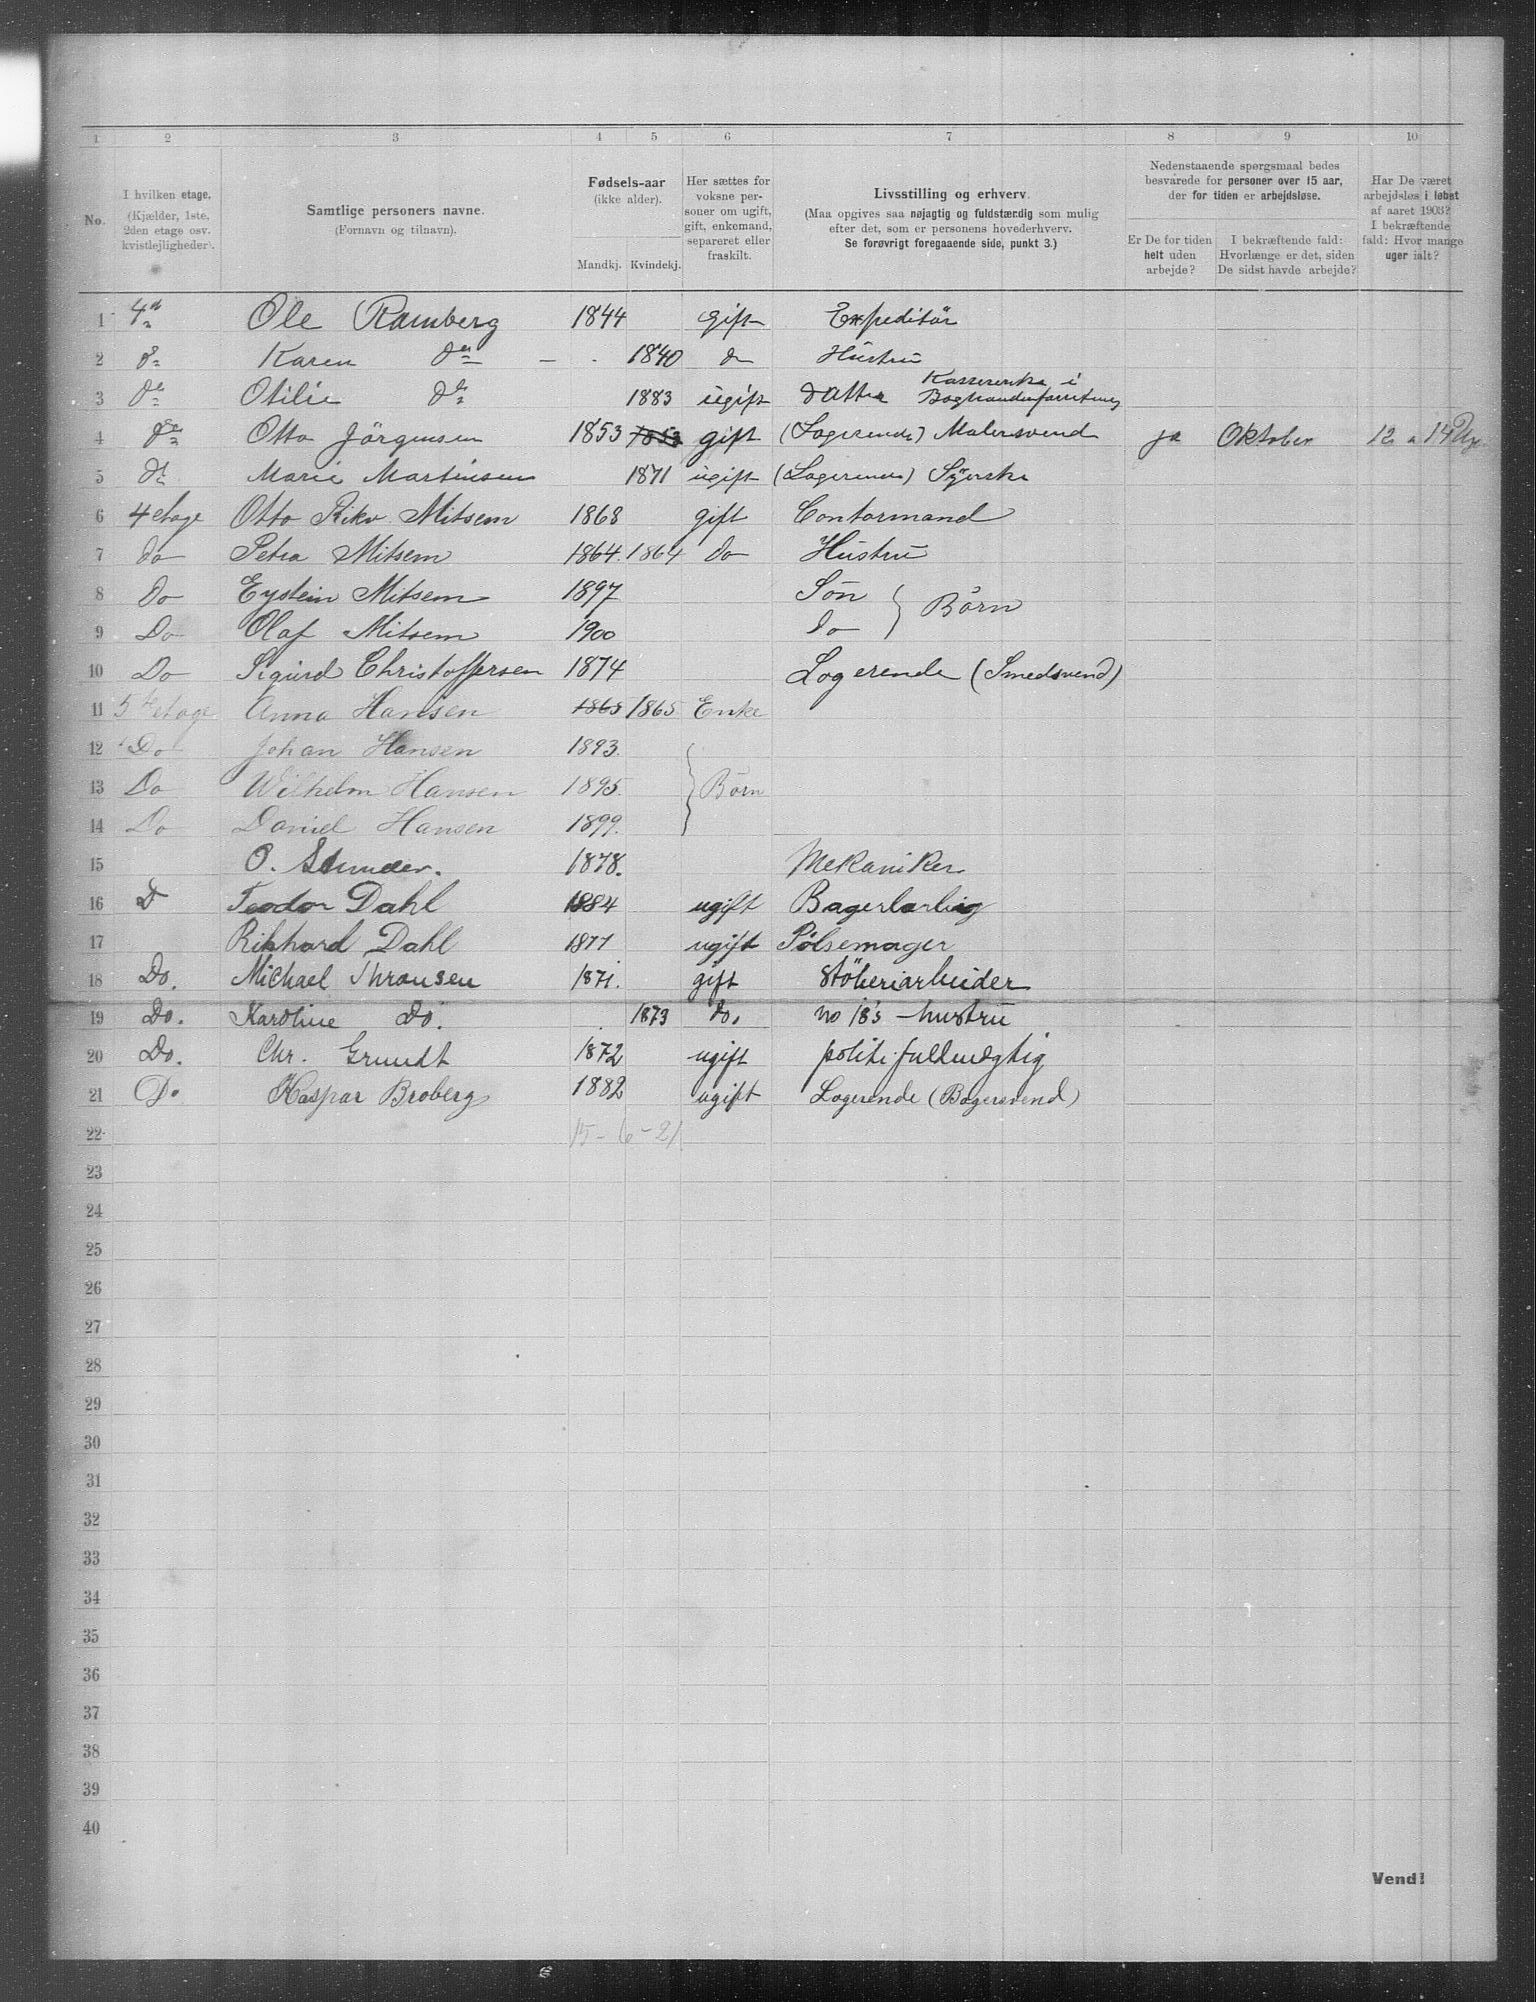 1 2 3 4 5 6 7 8 9 10
No.
I hvilken etage. (Kjælder, 1ste, 2den etage osv. kvistlejligheder).
Samtlige personers navne. (Fornavn og tilnavn).
Fødsels-aar (ikke alder).
Mandkj. Kvindekj.
Her sættes for voksne personer om ugift, gift, enkemand, separeret eller fraskilt.
Livsstilling og erhverv.
(Maa opgives saa nøjagtig og fuldstændig som mulig efter det, som er personens hovederhverv.
Se forøvrigt foregaaende side, punkt 3.)
Nedenstaaende spørgsmaal bedes besvarede for personer over 15 aar, der for tiden er arbejdsløse.
Er De for tiden helt uden arbejde?
I bekræftende fald: Hvorlænge er det, siden De sidst havde arbejde?
Har De været arbejdsløs i løbet af aaret 1903? I bekræftende fald: Hvor mange uger ialt?
1 4de Ole Ramberg 1844 gift Expeditör
2 do Karen do - . 1840 do Hustru
3 do Otilie do 1883 ugift datter Kassererske i
4 do Otto Jörgensen 1853 1853 gift (Logerende) Malersvend ja Oktober 12 a 14 Uge
5 do Marie Martinsen 1871 ugift (Logerende) Syerske
6 4 etage Otto Mitsem 1868 gift Contormand
7 do Petra Mitsem 1864. 1864 do Hustru
8 Do Eystein Mitsem 1897 Sön } Börn
9 Do Olaf Mitsem 1900 do
10 Do Sigurd Christoffersen 1874 Logerende (Smedsvend)
11 5te etage Anna Hansen 1865 1865 Enke
12 Do Johan Hansen 1893.
13 Do Wilhelm Hansen 1895. } Börn
14 Do Daniel Hansen 1899.
15 O. 1878. Mekaniker
16 D Teodor Dahl 1884 ugift Bagerlærling
17 Rikhard Dahl 1877 ugift Pölsemager
18 Do. Michael Thronsen 1871. gift Stöberiarbeider
19 Do. Karoline Do. . 1873 do. no 18's hustru
20 Do. Chr. Grundt 1872 ugift politifuldmægtig
21 Do Kaspar Broberg 1882 ugift Logerende (Bagersvend)
22 15-6-21
23
24
25
26
27
28
29
30
31
32
33
34
35
36
37
38
39
40
Vend!